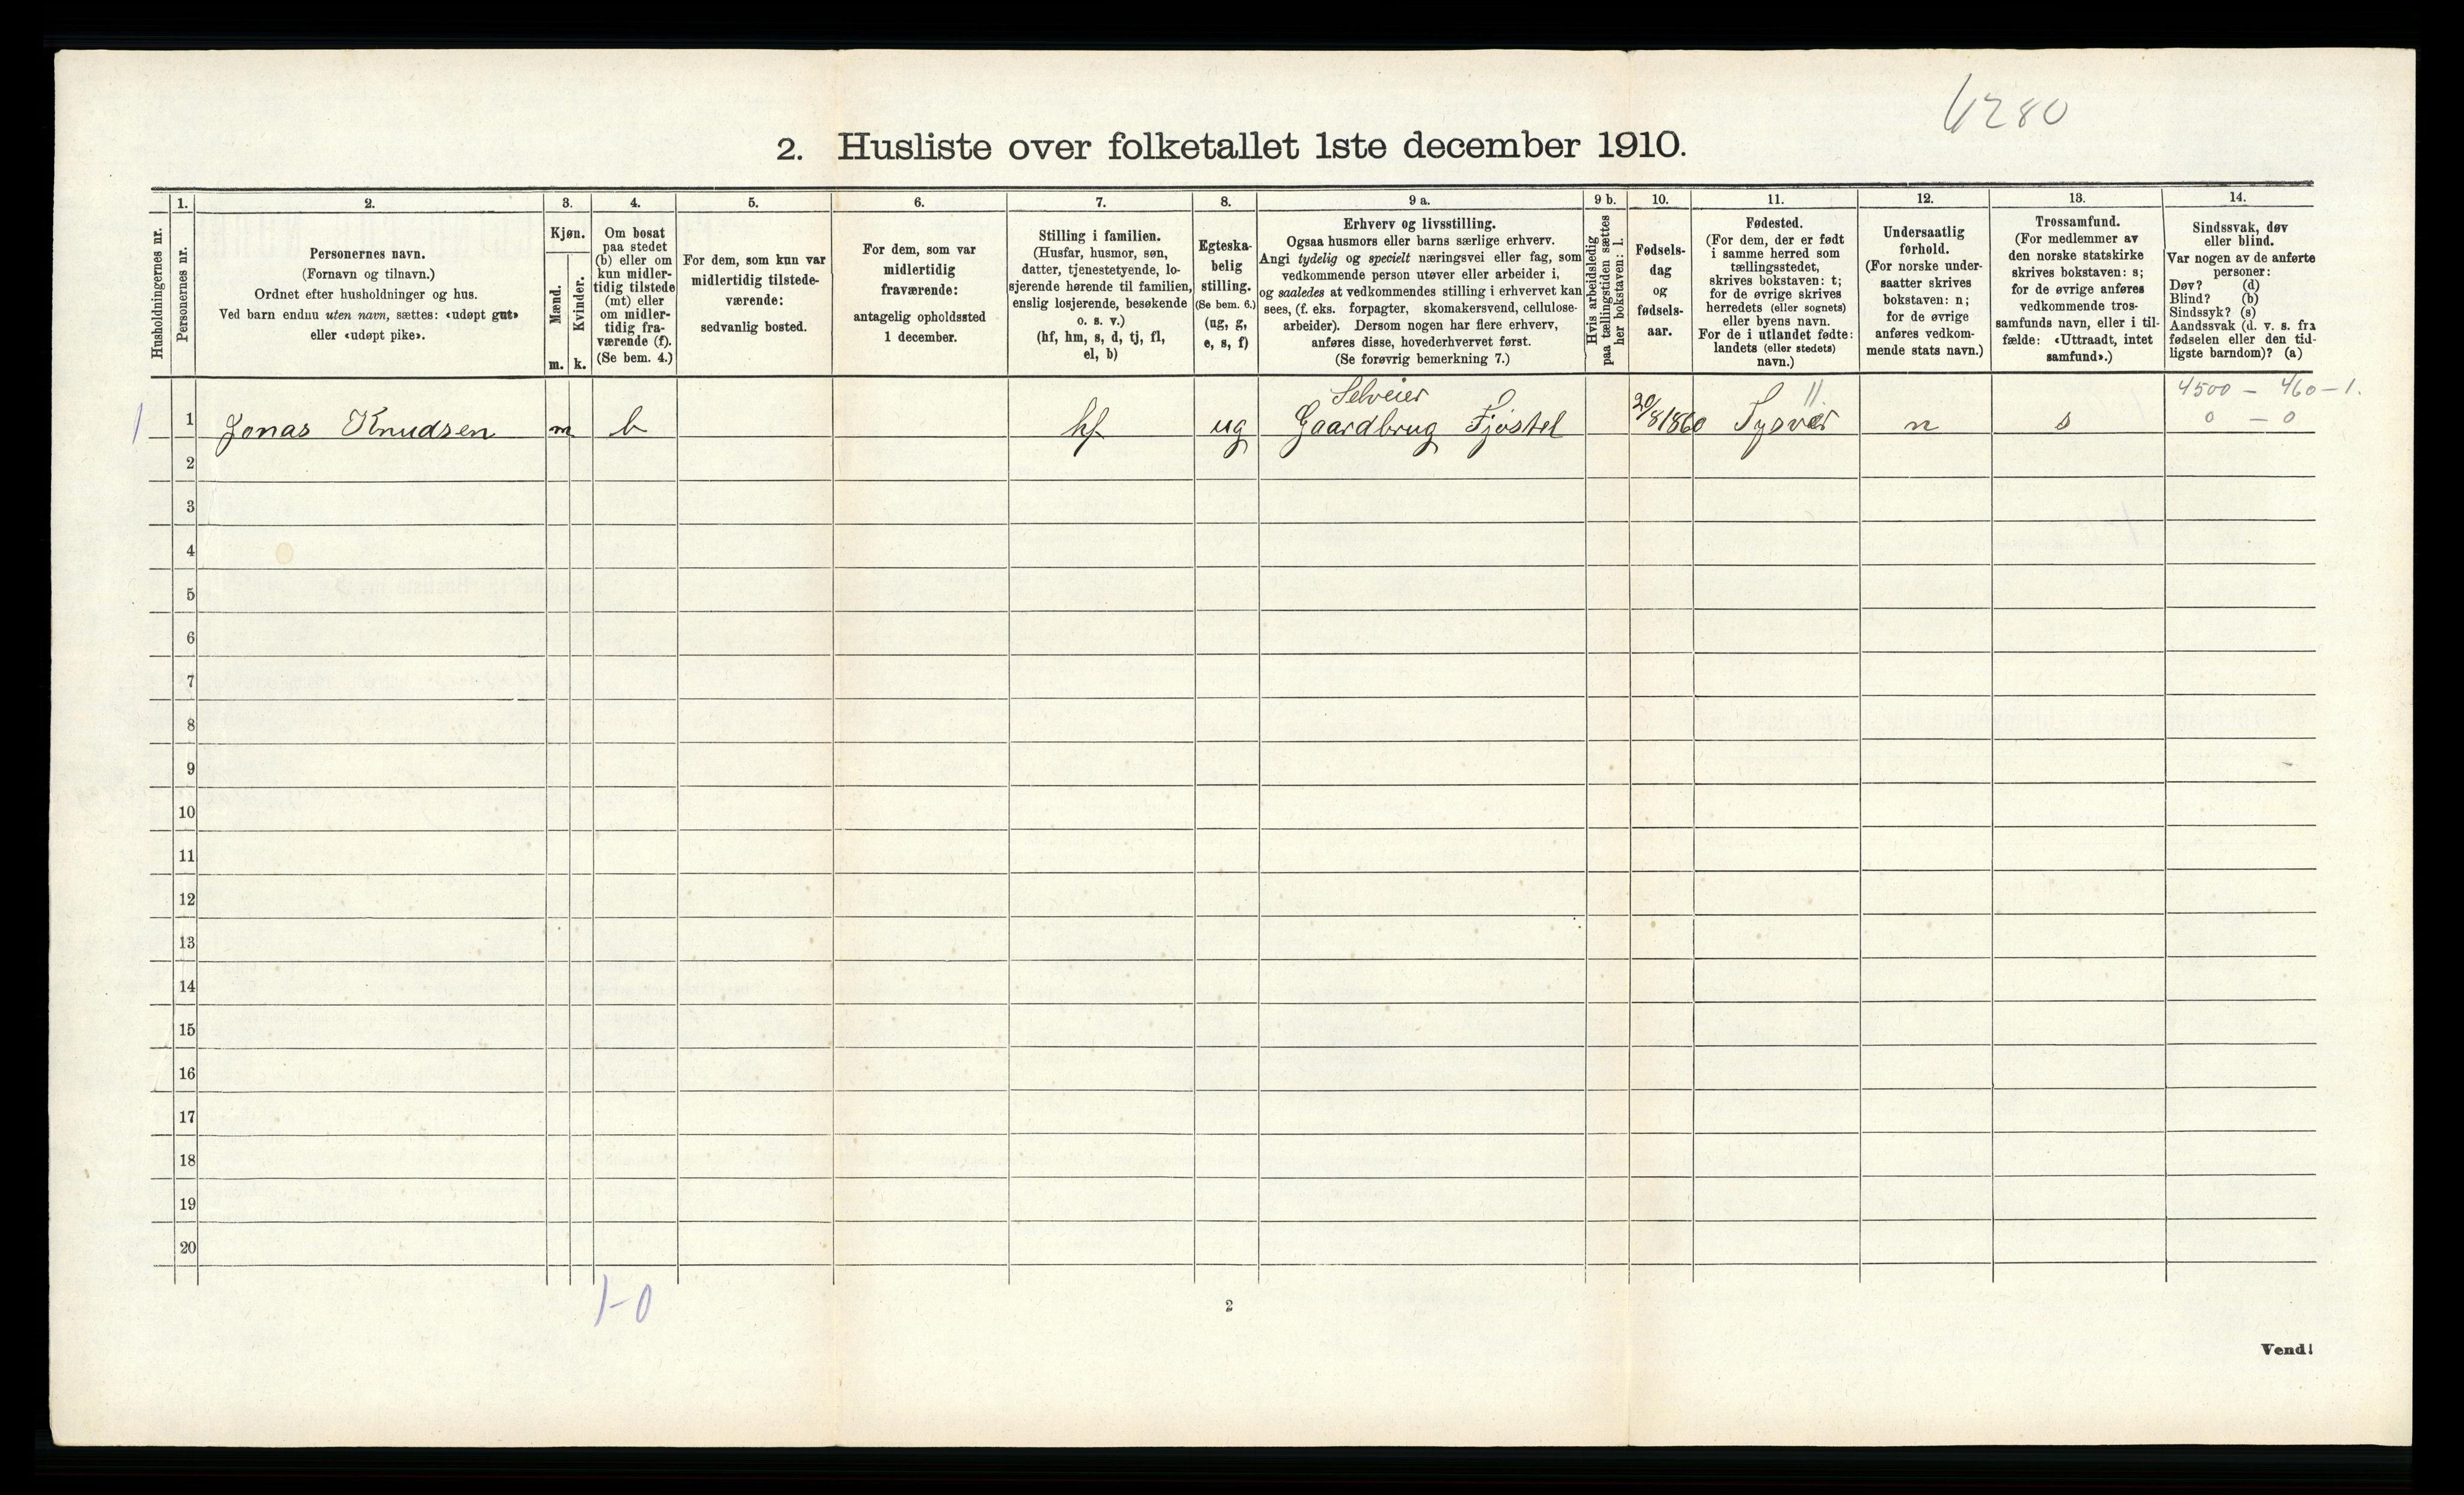 6280
2. Husliste over folketallet 1ste december 1910.
Husholdningernes nr.
1.
Personernes nr.
2.
Personernes navn.
(Fornavn og tilnavn.)
Ordnet efter husholdninger og hus.
Ved barn endnu uten navn, sættes: «udøpt gut»
eller «udøpt pike».
3.
Kjøn.
Mænd.
Kvinder.
m. k.
4.
Om bosat
paa stedet
(b) eller om
kun midler-
tidig tilstede
(mt) eller
om midler-
tidig fra-
værende (f).
(Se bem. 4.)
5.
For dem, som kun var
midlertidig tilstede-
værende:
sedvanlig bosted.
6.
For dem, som var
midlertidig
fraværende:
antagelig opholdssted
1 december.
7.
Stilling i familien.
(Husfar, husmor, søn,
datter, tjenestetyende, lo-
sjerende hørende til familien,
enslig losjerende, besøkende
o. s. v.)
(hf, hm, s, d, tj, fl,
el, b)
8.
Egteska-
belig
stilling.
(Se bem. 6.)
(ug, g,
e, s, f)
9 a.
Erhverv og livsstilling.
Ogsaa husmors eller barns særlige erhverv.
Angi tydelig og specielt næringsvei eller fag, som
vedkommende person utøver eller arbeider i,
og saaledes at vedkommendes stilling i erhvervet kan
sees, (f. eks. forpagter, skomakersvend, cellulose-
arbeider). Dersom nogen har flere erhverv,
anføres disse, hovederhvervet først.
(Se forøvrig bemerkning 7.)
9 b.
Hvis arbeidsledig
paa tællingstiden sættes
her bokstaven: l.
10.
Fødsels-
dag
og
fødsels-
aar.
11.
Fødested.
(For dem, der er født
i samme herred som
tællingsstedet,
skrives bokstaven: t;
for de øvrige skrives
herredets (eller sognets)
eller byens navn.
For de i utlandet fødte:
landets (eller stedets)
navn.)
12.
Undersaatlig
forhold.
(For norske under-
saatter skrives
bokstaven: n;
for de øvrige
anføres vedkom-
mende stats navn.)
13.
Trossamfund.
(For medlemmer av
den norske statskirke
skrives bokstaven: s;
for de øvrige anføres
vedkommende tros-
samfunds navn, eller i til-
fælde: «Uttraadt, intet
samfund».)
14.
Sindssvak, døv
eller blind.
Var nogen av de anførte
personer:
Døv? (d)
Blind? (b)
Sindssyk? (s)
Aandssvak (d. v. s. fra
fødselen eller den tid-
ligste barndom)? (a)
Selveier 11. 4500 – 460 – 1.
1 1 Jonas Knudsen m b hf ug Gaardbrug Fjøstel 20/8 1860 Tysvær n s 0 – 0
2
3
4
5
6
7
8
9
10
11
12
13
14
15
16
17
18
19
20
1-0
2
Vend!